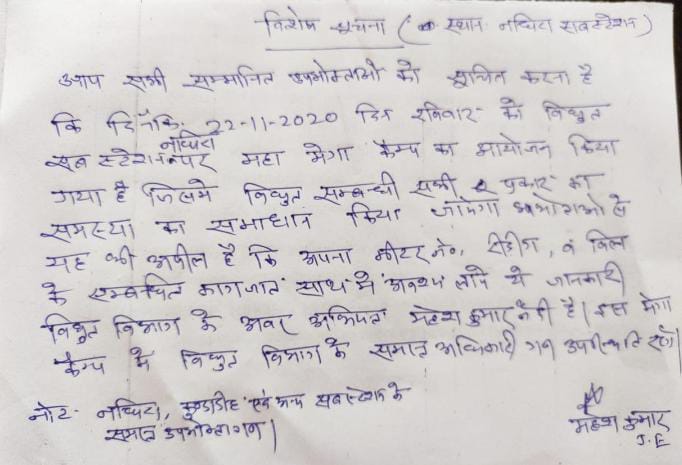 विशेष सूचना ( स्थान नथ्पिटा सबस्टेशन )
आप सभी सम्मानित उपभोक्ताओ को सुचित करना है
कि दिनाँक 22-11-2020 दिन रविवार को विधुत
सब स्टेशन नथ्पिटा पर महा मेगा कैम्प का आयोजन किया
गया है जिसमे विधुत सम्बन्धी सभी प्रकार का
समस्या का समाधान किया जायेगा उपभोगताओ से
यह भी अपील है कि अपना मीटर नं०, रीडींग, व बिल
के सम्बन्धित कागजात साथ मे अवश्य लाये ये जानकारी
विधुत विभाग के अवर अभियंता महेश कुमार ने दी है। इस मेगा
कैम्प मे विधुत विभाग के समस्त अधिकारी गन उपस्थिति रहेंगे।
नोट- नथ्पिटा, कुण्डाडीह एवं अन्य सबस्टेशन के
समस्त उपभोक्तागण।
महेश कुमार
J.E